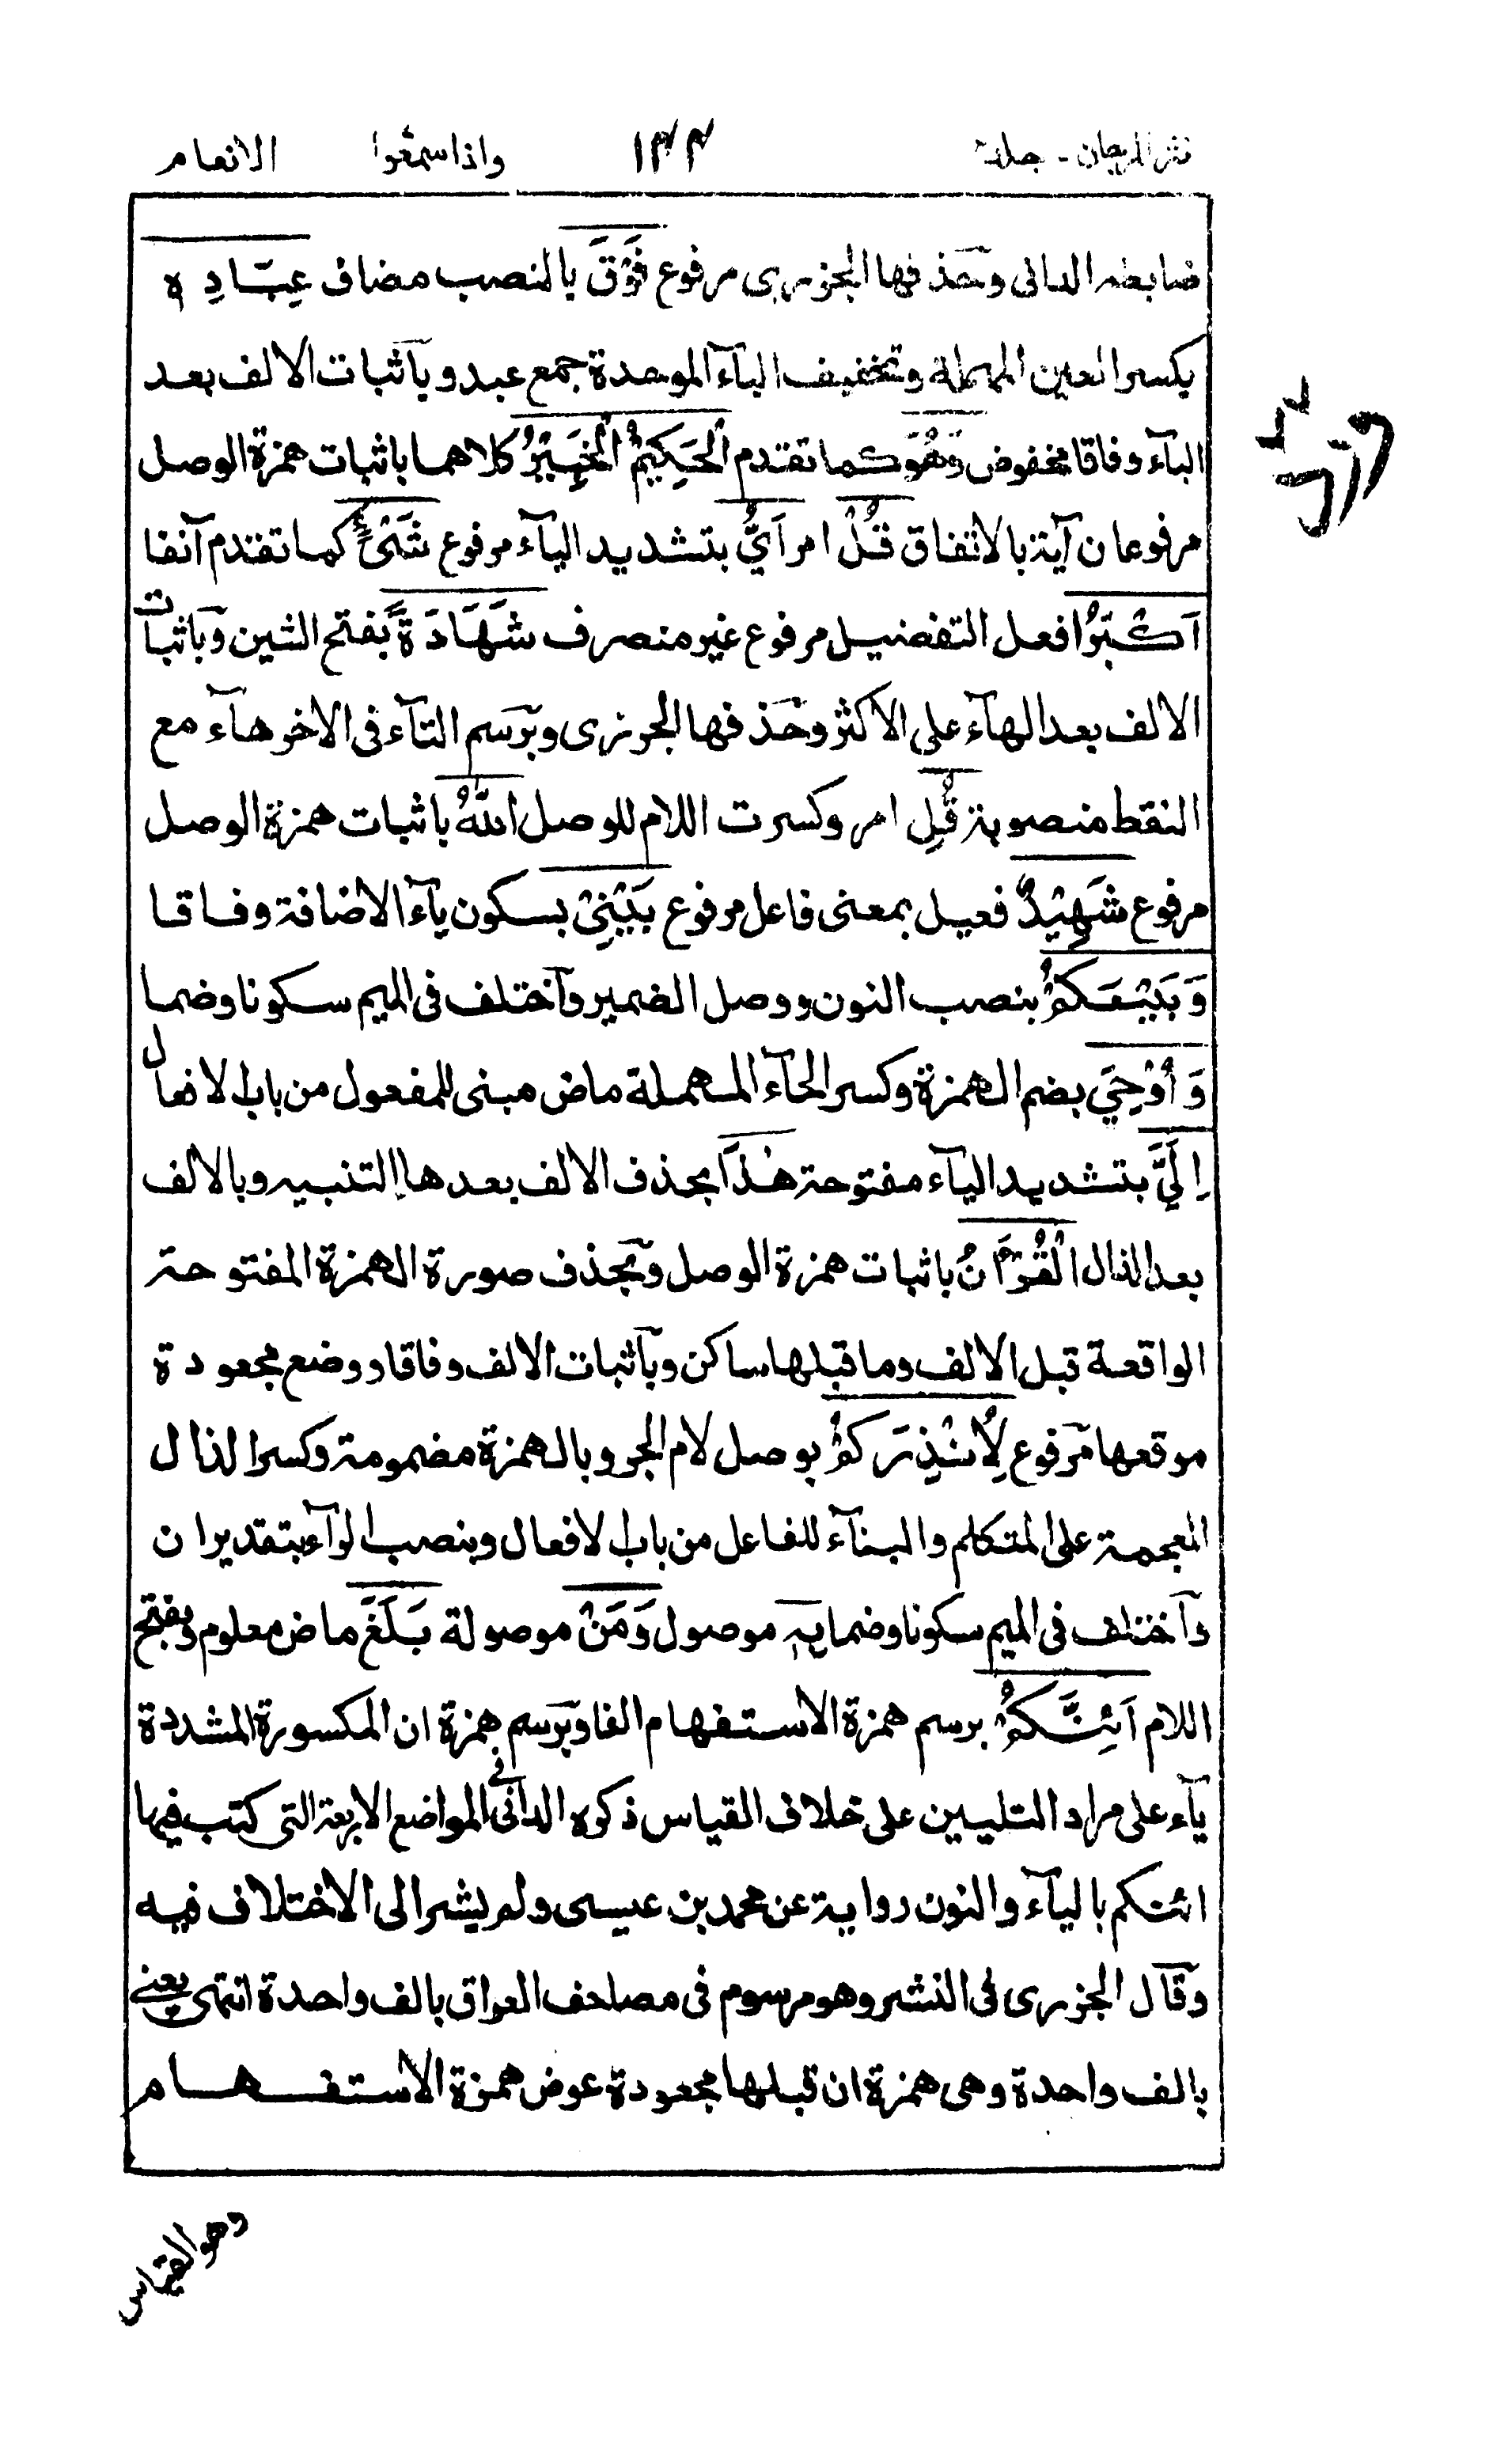 نثر المرجان - جلد ٢
١٣٣
واذا سمعوا
الانعام
ضابطه الدانى وحذفها الجزرى مرفوع فَوْقَ بالنصب مضاف عِبَادِهٖ
بكسر العين المهملة وتخفيف البآء الموحدة جمع عبد وباثبات الالف بعد
البآء وفاقا مخفوض وَهُوَ كما تقدم الْحَكِيمُ الْخَبِيْرُ كلاهما باثبات همزة الوصل
مرفوعان آية بالاتفاق قُلْ امر اَيُّ بتشديد اليآء مرفوع شَىْءٍ كما تقدم آنفا
اَكْبَرُ افعل التفضيل مرفوع غير منصرف شَهَادَةً بفتح الشين وباثبات
الالف بعد الهآء على الاكثر وحذفها الجزرى وبرسم التآء فى الاخر هآء مع
النقط منصوبة قُلِ امر وكسرت اللام للوصل اللّٰهُ باثبات همزة الوصل
مرفوع شَهِيْدٌ فعيل بمعنى فاعل مرفوع بَيْنِىْ بسكون يآء الاضافة وفاقا
وَبَيْنَكُمْ بنصب النون ووصل الضمير واختلف فى الميم سكونا وضما
وَاُوْحِيَ بضم الهمزة وكسر الحآء المهملة ماض مبنى للمفعول من باب الافعال
اِلَيَّ بتشديد اليآء مفتوحة هٰذَا بحذف الالف بعد هاالتنبيه وبالالف
بعد الذال الْقُرْاٰنُ باثبات همزة الوصل وبحذف صورة الهمزة المفتوحة
الواقعة قبل الالف وما قبلها ساكن وباثبات الالف وفاقا ووضع مجعودة
موقعها مرفوع لِاُنْذِرَكُمْ بوصل لام الجر وبالهمزة مضمومة وكسر الذال
المعجمة على المتكلم والبنآء للفاعل من باب الافعال وبنصب الرآء بتقدير ان
واختلف فى الميم سكونا وضما بِهٖ موصول وَمَنْ موصولة بَلَغَ ماض معلوم وبفتح
اللام اَئِنَّكُمْ برسم همزة الاستفهام الفا وبرسم همزة ان المكسورة المشددة
يآء على مراد التليين على خلاف القياس ذكره الدانى فى المواضع الاربعة التى كتب فيها
ائنكم باليآء والنون رواية عن محمد بن عيسى ولم يشر الى الاختلاف فيه
وقال الجزرى فى النشر وهو مرسوم فى مصاحف العراق بالف واحدة انتهى يعنى
بالف واحدة وهى همزة ان قبلها مجعودة عوض همزة الاستفهام
وهو القياس